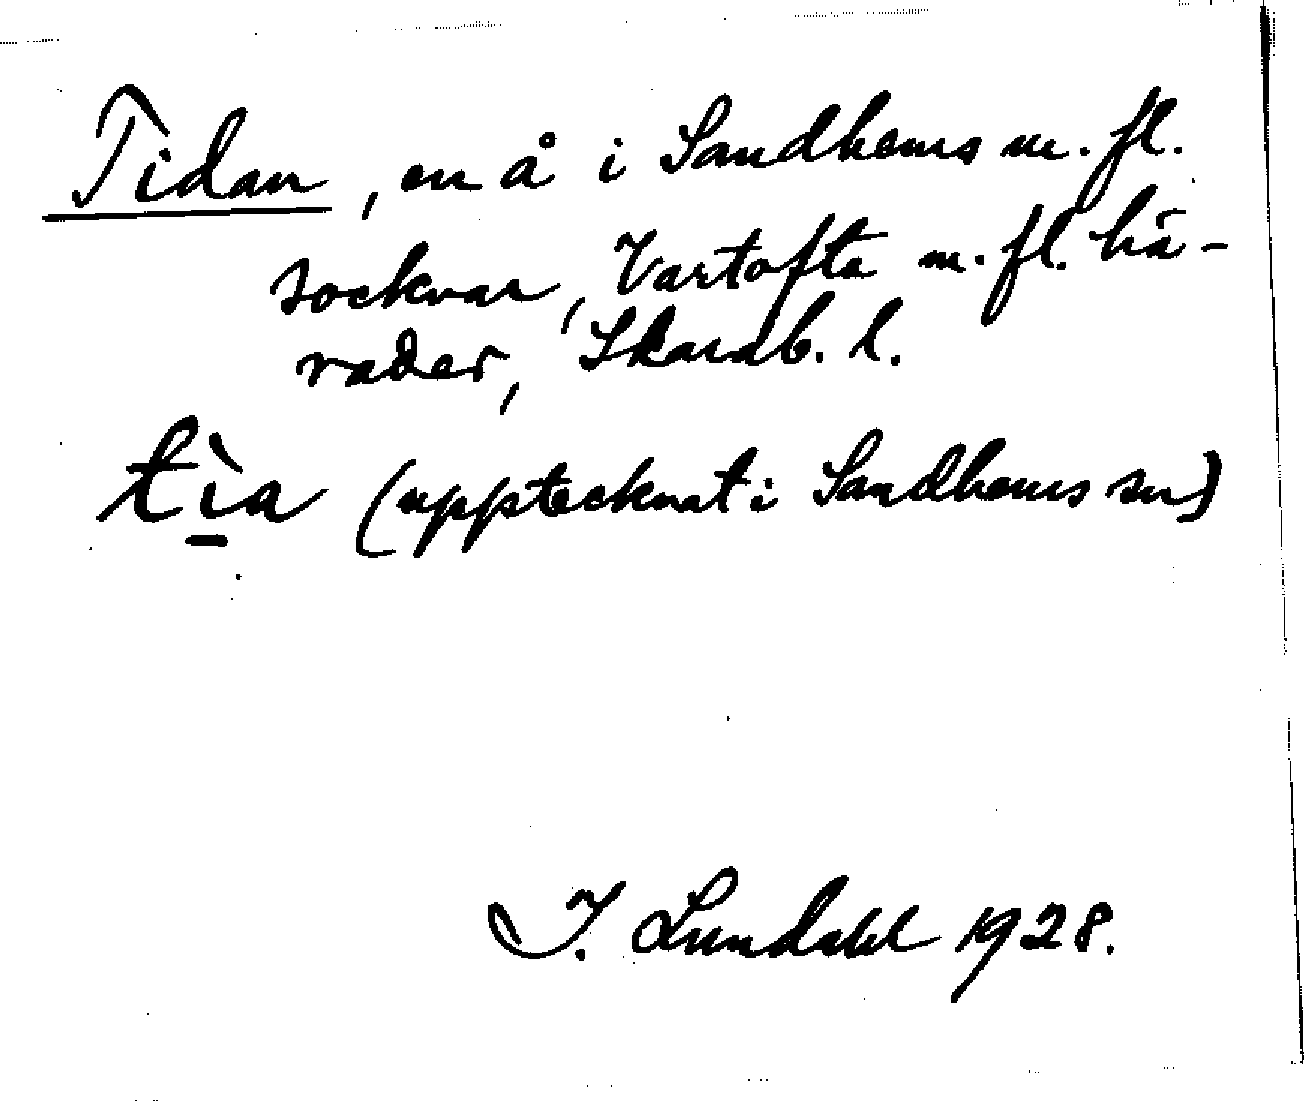 Tidan, en å i Sandhems m. fl.
socknar, Vartofta m. fl. hä-
rader, Skarab. l.
tìa (upptecknat i Sandhems sn)
I. Lundahl 1928.